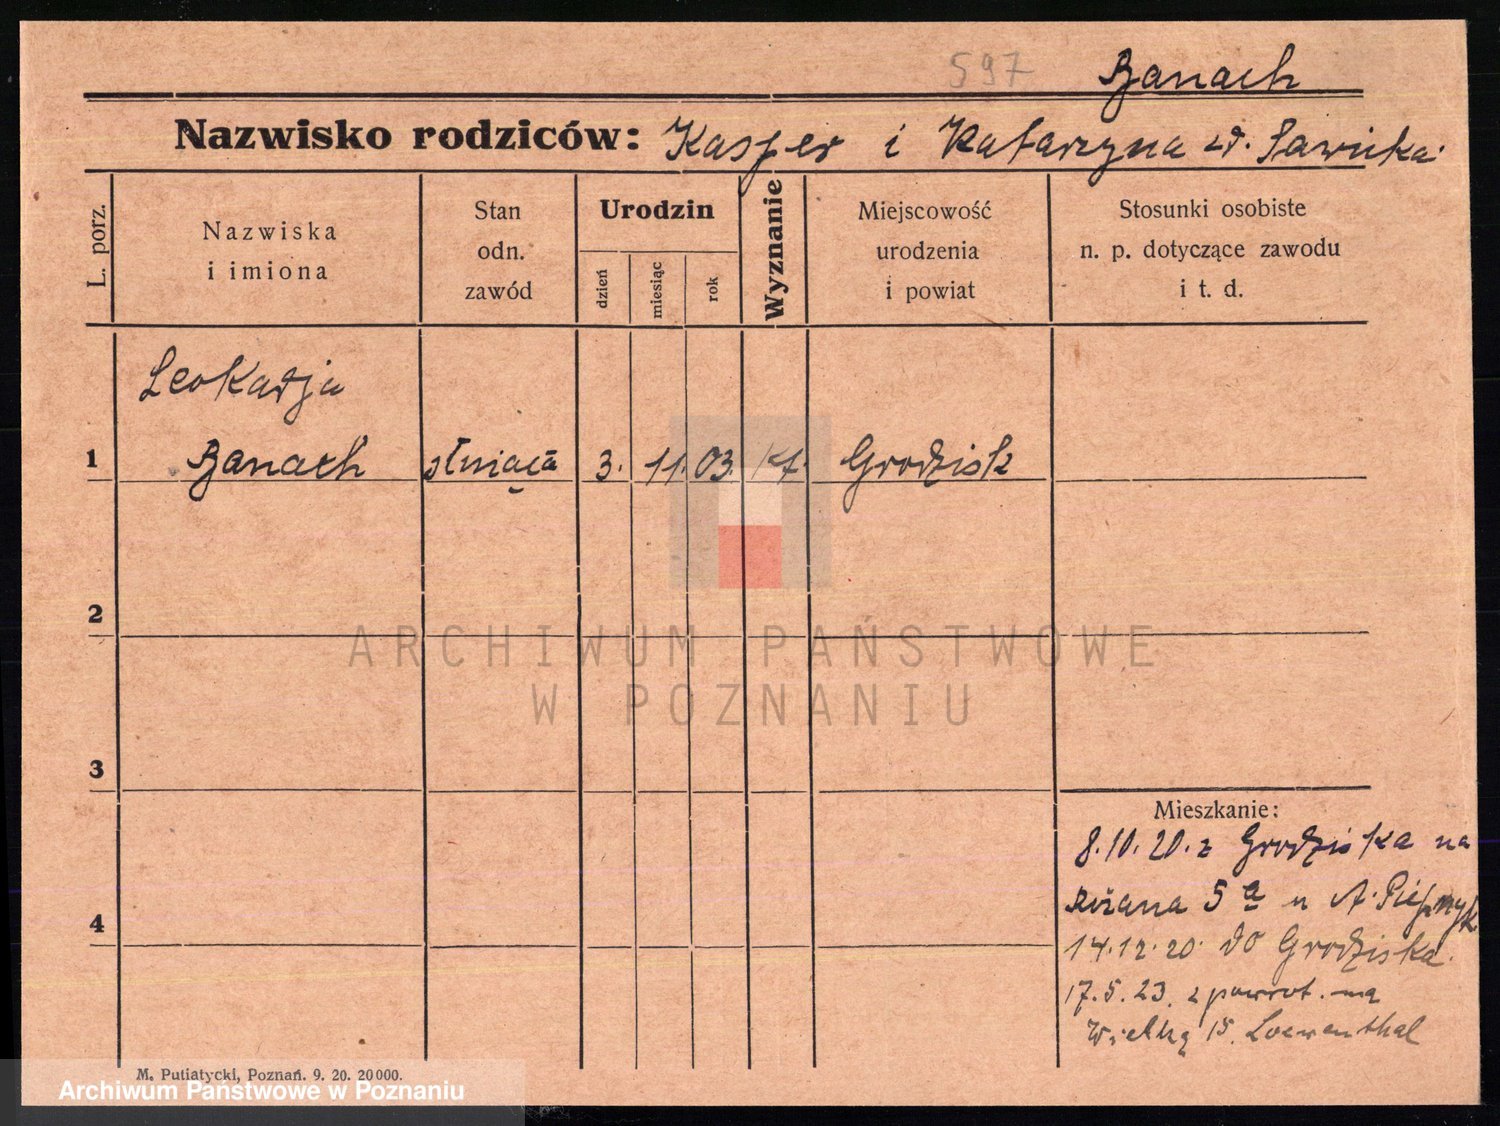 597 Banach
Nazwisko rodziców: Kasper i Katarzyna z d. Sawicka
L. porz.
Nazwiska
i imiona
Stan
odn.
zawód
Urodzin
dzień
miesiąc
rok
Wyznanie
Miejscowość
urodzenia
i powiat
Stosunki osobiste
n. p. dotyczące zawodu
i t. d.
Leokadja
1 Banach służąca 3. 11. 03. kt. Grodzisk
2
3
4
Mieszkanie:
8.10.20. z Grodziska na
Różana 5 a u A.
14.12.20. do Grodziska.
17.5.23. z powrot. na
Wielką 15. Loewenthal
M. Putiatycki, Poznań. 9. 20. 20000.
ARCHIWUM PAŃSTWOWE
W POZNANIU
Archiwum Państwowe w Poznaniu